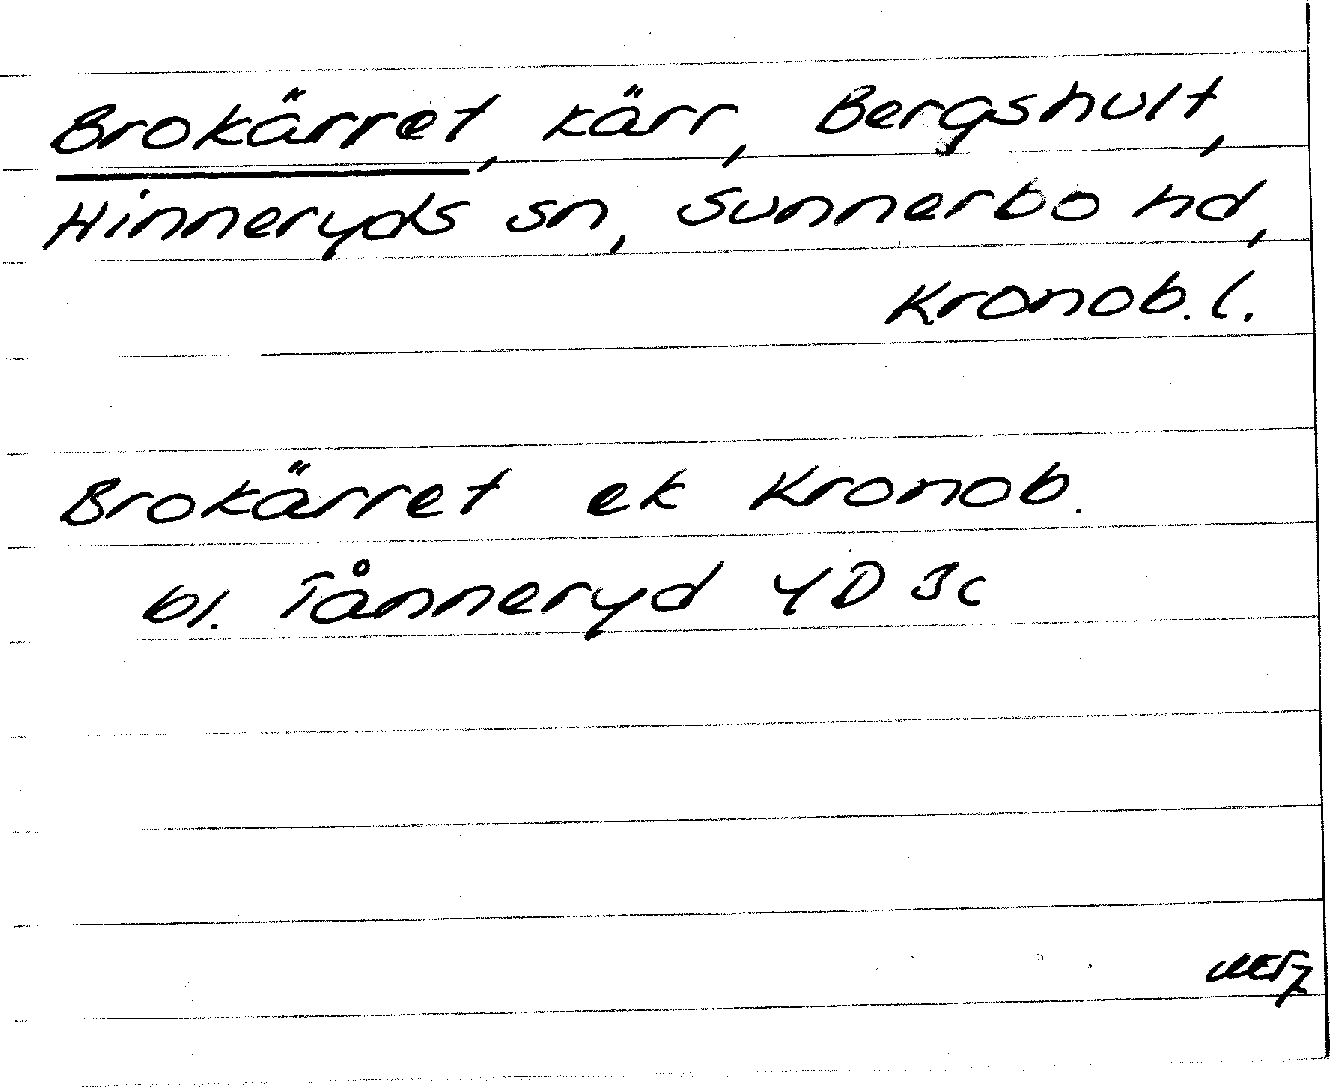 Brokärret, kärr, Bergshult,
Hinneryds sn, Sunnerbo hd,
Kronob. l.
Brokärret ek Kronob.
bl. Tånneryd 4D 3c